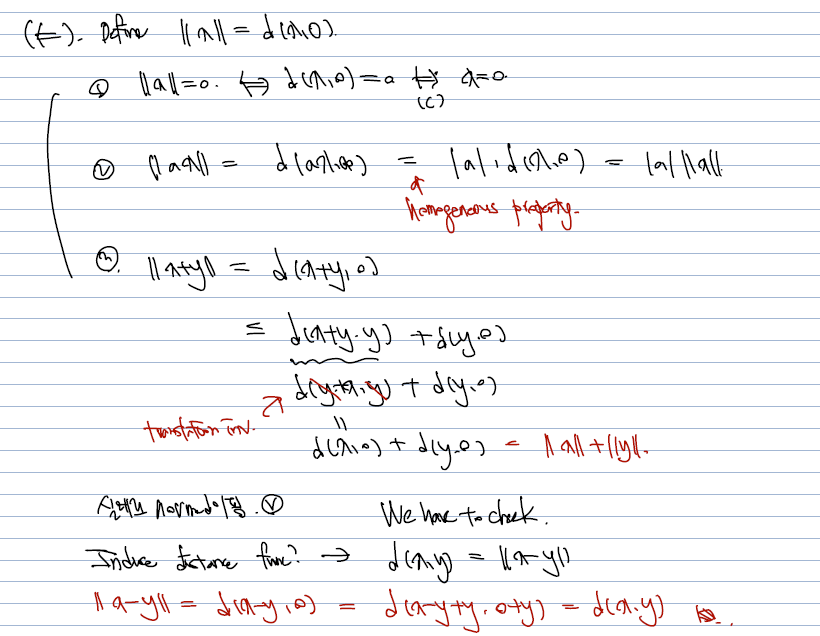 (⇐). Define ||x|| = d(x,0).
① ||x||=0. ⇔ d(x,0)=0 ⇔ x=0.
(c)
② ||ax|| = d(ax,0) = |a|·d(x,0) = |a| ||x||.
homogenous property.
③. ||x+y|| = d(x+y,0)
≤ d(x+y,y) + d(y,0)
d(y+x,y) + d(y,0)
translation inv.
||
d(x,0) + d(y,0) = ||x||+||y||.
실제로 norm이 됨. ✓ We have to check.
Induce distance func? → d(x,y) = ||x-y||
||x-y|| = d(x-y,0) = d(x-y+y, 0+y) = d(x,y)